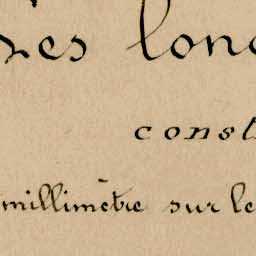 Les lon
const
millimètre sur le